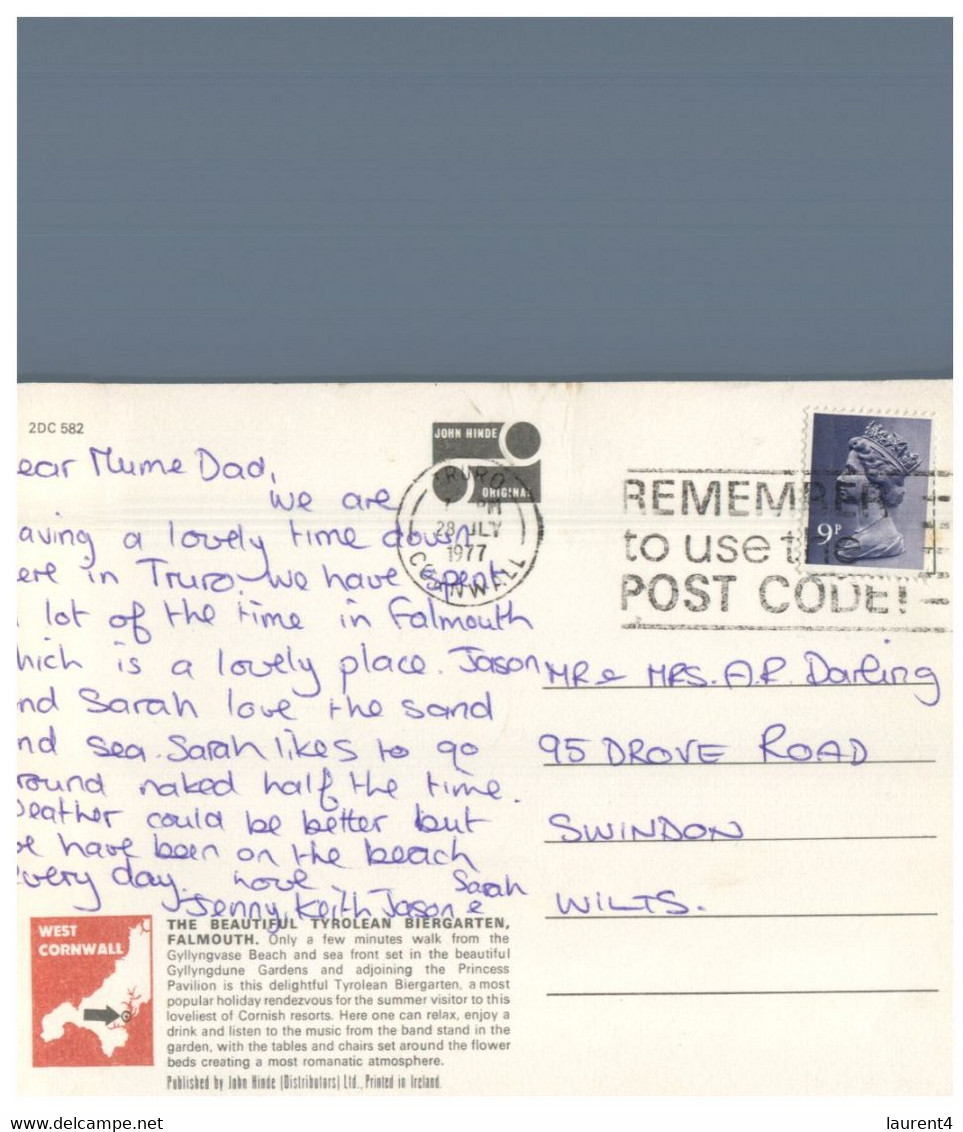 2DC 582
JOHN HINDE
ORIGINAL
ear Mum e Dad,
we are
aving a lovely time down
ere in Truro. We have spent
lot of the time in Falmouth
hich is a lovely place. Jason
nd Sarah love the sand
nd sea. Sarah likes to go
round naked half the time.
eather could be better but
e have been on the beach
very day. Love
Jenny, Keith Jason e Sarah
TRURO
PM
28 JLY
1977
CORNWALL
REMEMBER
to use the
POST CODE!
9P
MR e MRS. A.R. Darling
95 DROVE ROAD
SWINDON
WILTS.
WEST
CORNWALL
THE BEAUTIFUL TYROLEAN BIERGARTEN,
FALMOUTH. Only a few minutes walk from the
Gyllyngvase Beach and sea front set in the beautiful
Gyllyngdune Gardens and adjoining the Princess
Pavilion is this delightful Tyrolean Biergarten, a most
popular holiday rendezvous for the summer visitor to this
loveliest of Cornish resorts. Here one can relax, enjoy a
drink and listen to the music from the band stand in the
garden, with the tables and chairs set around the flower
beds creating a most romanatic atmosphere.
Published by John Hinde (Distributors) Ltd., Printed in Ireland.
laurent4